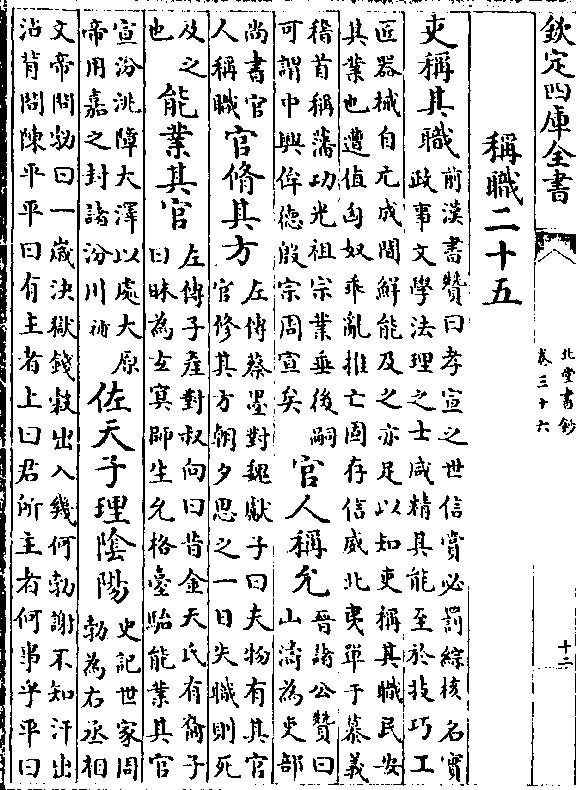 欽定四庫全書
北堂書鈔
卷三十六
十二
稱職二十五
吏稱其職
前漢書贊曰孝宣之世信賞必罰綜核名實
政事文學法理之士咸精其能至於技巧工
匠器械自元成間鮮能及之亦足以知吏稱其職民安
其業也遭值匈奴乖亂推亡固存信威北夷單于慕義
稽首稱藩功光祖宗業垂後嗣
可謂中興侔德殷宗周宣矣
官人稱允
晉諸公贊曰
山濤為吏部
尚書官
人稱職
官脩其方
左傳蔡墨對魏獻子曰夫物有其官
官修其方朝夕思之一日失職則死
及之
也
能業其官
左傳子產對叔向曰昔金天氏有裔子
曰昧為玄冥師生允格臺駘能業其官
宣汾洮障大澤以處大原
帝用嘉之封諸汾川補
佐天子理陰陽
史記世家周
勃為右丞相
文帝問勃曰一歲決獄錢穀出入幾何勃謝不知汗出
沾背問陳平平曰有主者上曰君所主者何事乎平曰